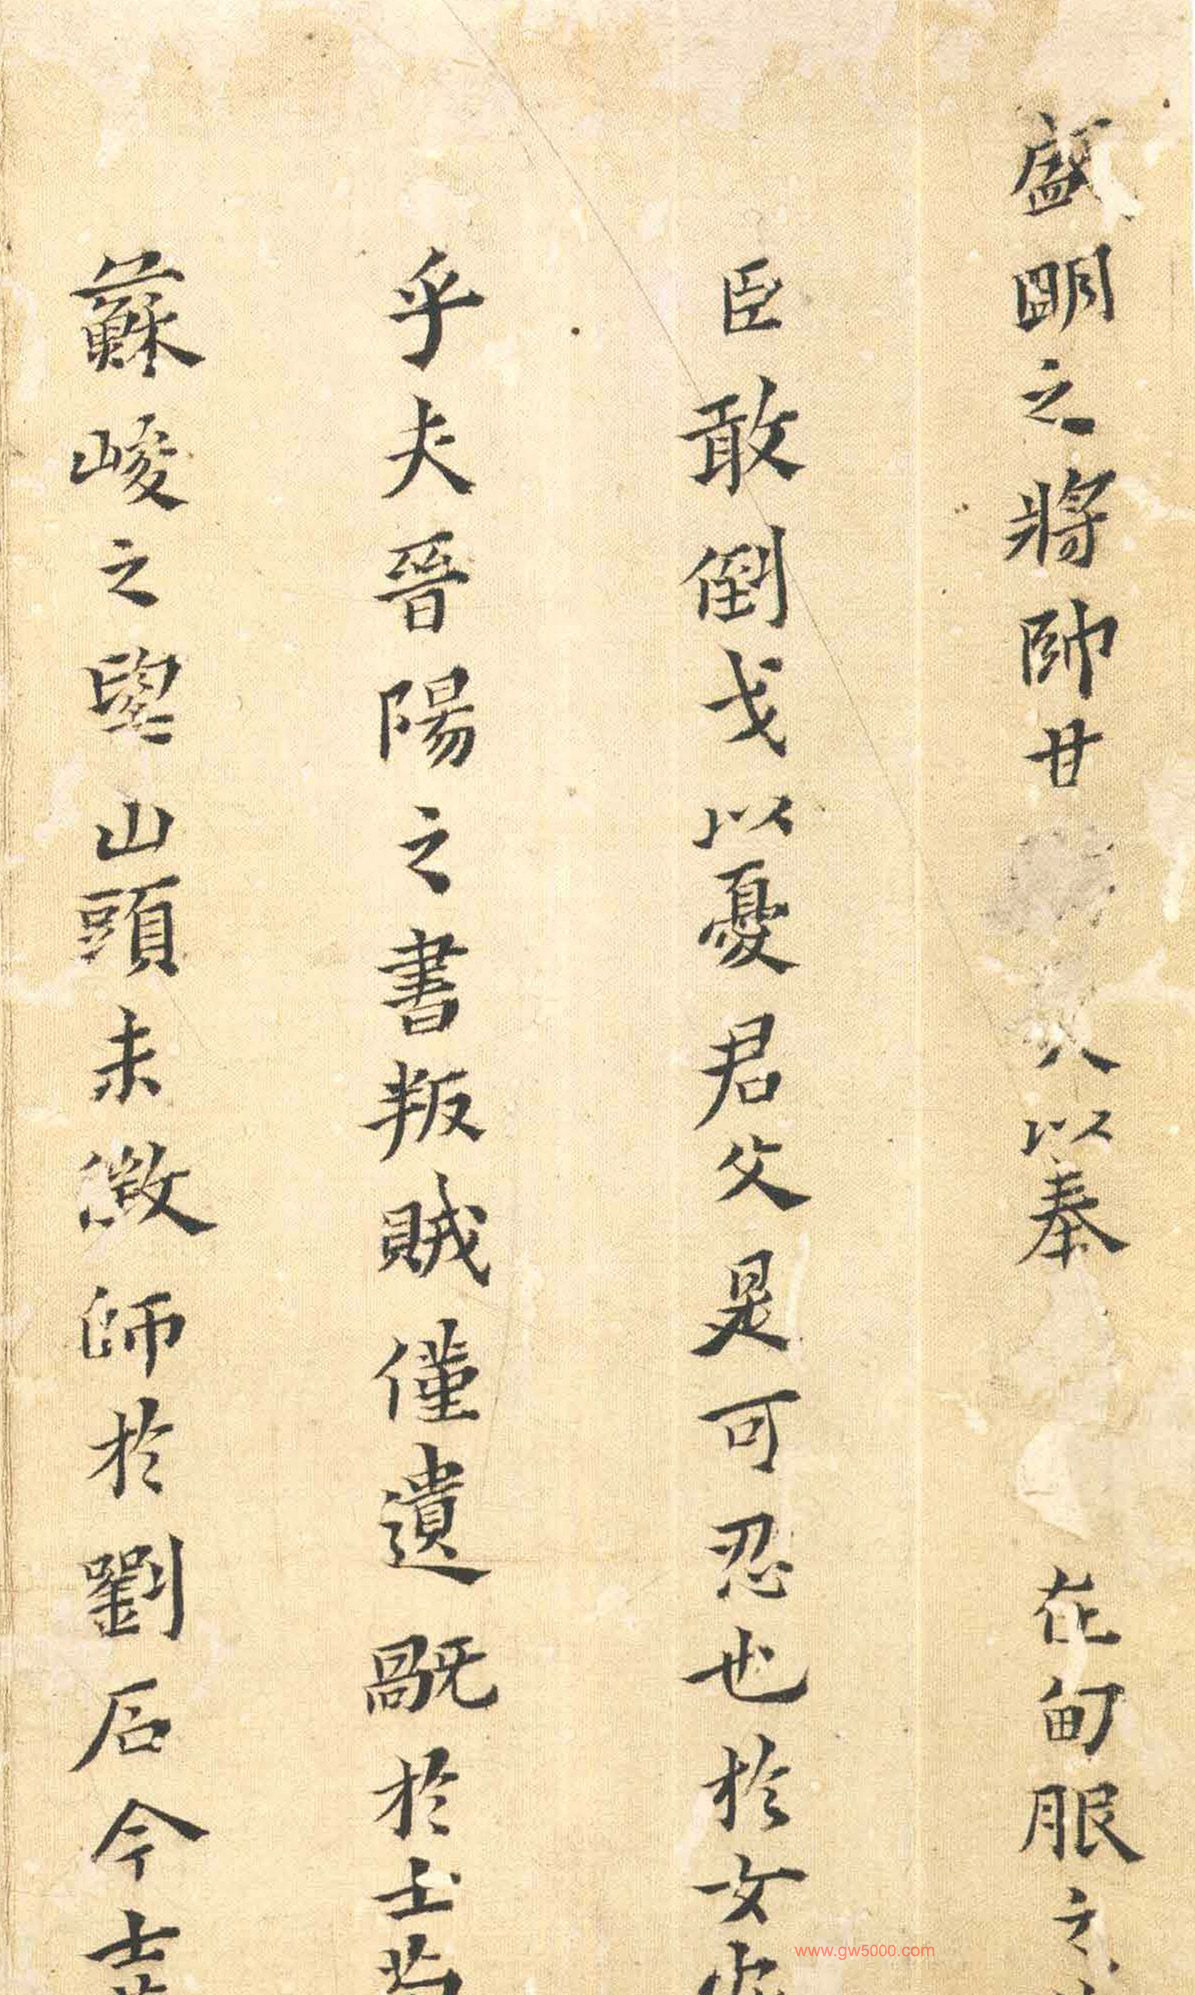 盛明之將帥甘以奉在甸服之
臣敢倒戈以憂君父是可忍也於女安
乎夫晉陽之書叛賊僅遺於土
蘇峻之望山頭未徵師於劉后今士
www.gw5000.com